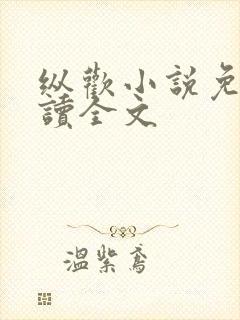 纵歡小説免
讀全文
溫紫鸢